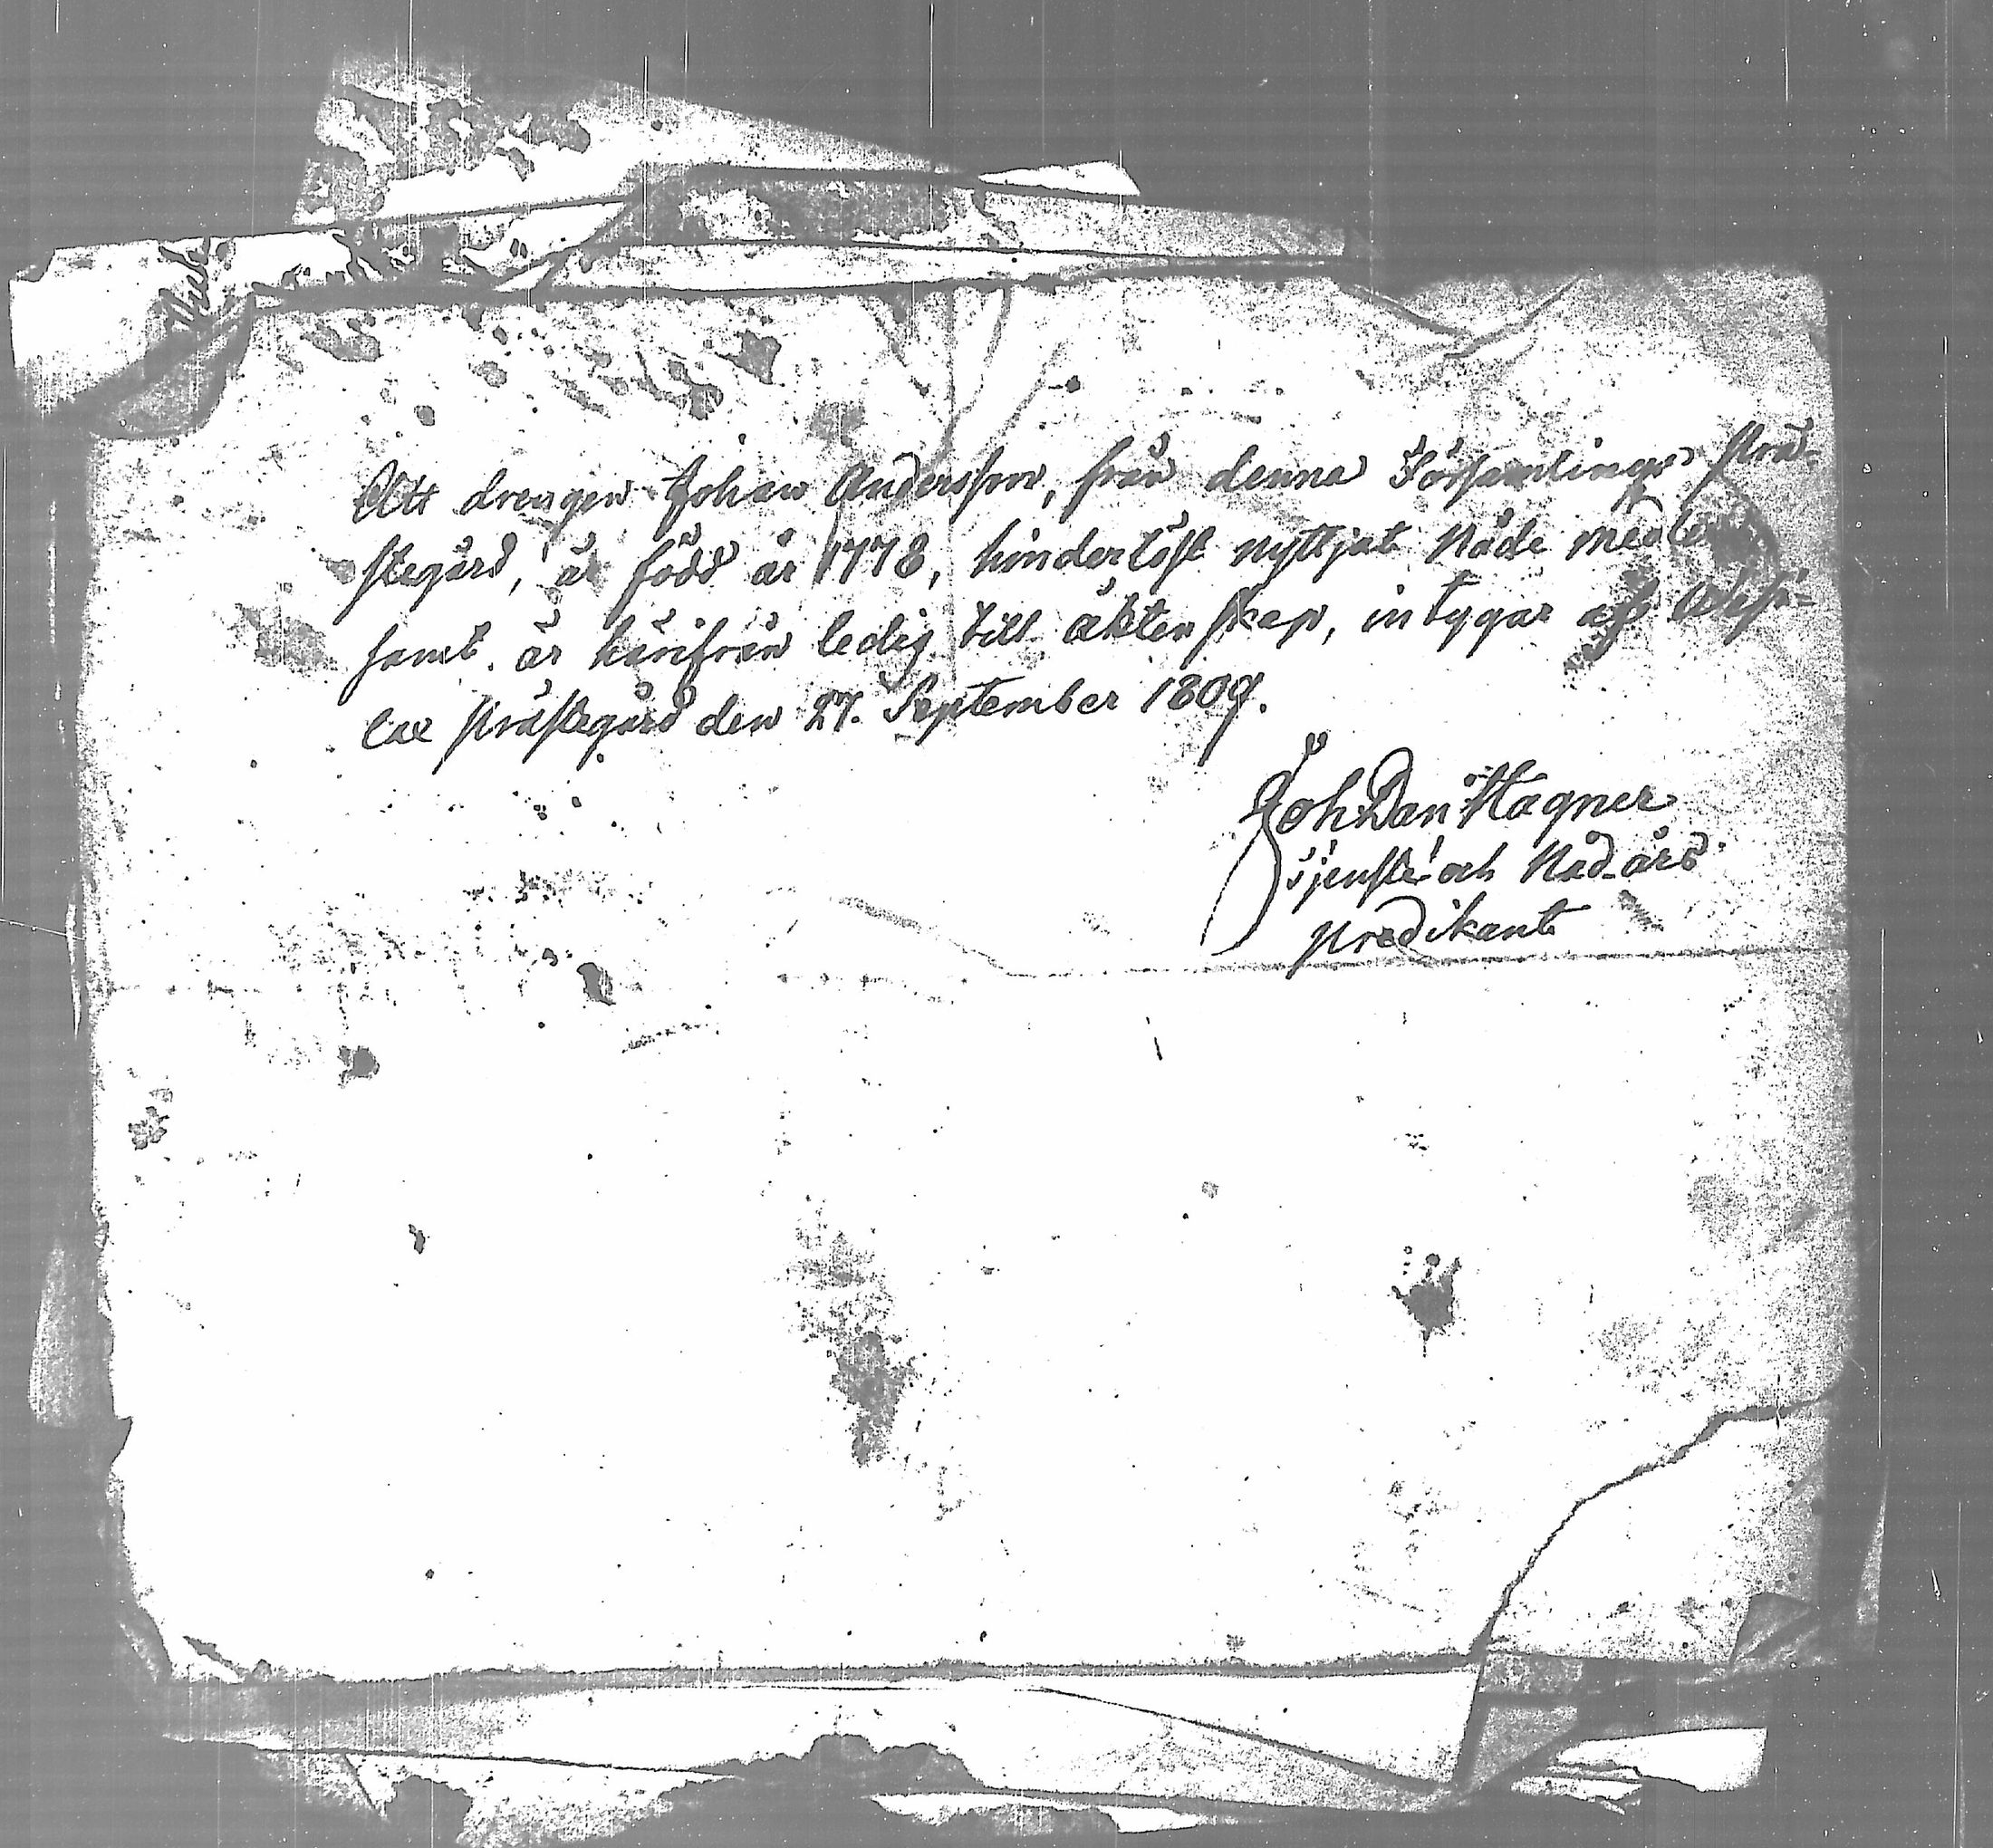 Att drengen Johan Andersson, från denna Församlings Prä-
stegård, är född år 1778, hinderlöst nyttjat Nåde medlen
samt är härifrån ledig till äktenskap, intygar af Wirfi-
lax Prästegård den 27. September 1809.
Joh Dan Hagner
tjenste och Nåd-års
predikant